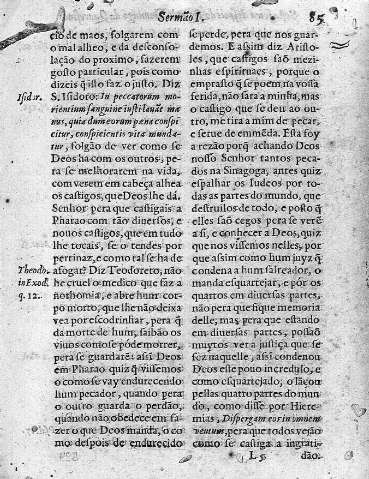 Sermão I.
85
cio de maos, folgarem com
o mal alheo, e da desconso-
lação do proximo, fazerem
gosto particular, pois como
dizeis q̃ isso faz o justo. Diz
Isid. sr.
S. Isidoro: In peccatorum mo-
rientium sanguine iustilauat ma
nus, quia dum eorum pena conspi
citur, conspicientis vita munda-
tur, folgão de ver como se
Deos ha com os outros, pe-
ra se melhorarem na vida,
com verem em cabeça alhea
os castigos, que Deos lhe dá.
Senhor pera que castigais a
Pharao com tão diuersos, e
nouos castigos, que em tudo
lhe tocais, se o tendes por
pertinaz, e como tal se ha de
Theodo.
in Exod.
q. 12.
afogar? Diz Teodoreto, não
he cruel o medico que faz a
nothomia, e abre hum cor-
po morto, que lhe não deixa
vea por escodrinhar, pera q̃
da morte de hum, saibão os
viuos como se póde morrer,
pera se guardarẽ: assi Deos
em Pharao quiz q̃ vissemos
o como se vay endurecendo
hum peccador, quando pera
o outro guarda o perdão,
quando não obedece em fa-
zer o que Deos manda, o co
mo despois de endurecido
se perde, pera que nos guar-
demos. E assim diz Aristo-
les, que castigos saõ mezi-
nhas espirituaes, porque o
emprasto q̃ se poem na vossa
ferida, não sara a minha, mas
o castigo que se deu ao ou-
tro, me tira a mim de peccar,
e serue de emmẽda. Esta foy
a rezão porq̃ achando Deos
nosso Senhor tantos pecca-
dos na Sinagoga, antes quiz
espalhar os Iudeos por to-
das as partes do mundo, que
destruilos de todo, e posto q̃
elles saõ cegos pera se verẽ
a si, e conhecer a Deos, quiz
que nos vissemos nelles, por
que assim como hum juyz q̃
condena a hum salteador, o
manda esquartejar, e pór os
quartos em diuersas partes,
não pera que fique memoria
delle, mas pera que estando
em diuersas partes, possaõ
muytos ver a justiça que se
fez naquelle, assi condenou
Deos esse pouo incredulo, e
como esquartejado, o lãçou
pellas quatro partes do mun
do, como disse por Hiere-
mias, Dispergam eos in omnem
ventum, pera que todos vejão
como se castiga a ingrati-
L 5
dão.